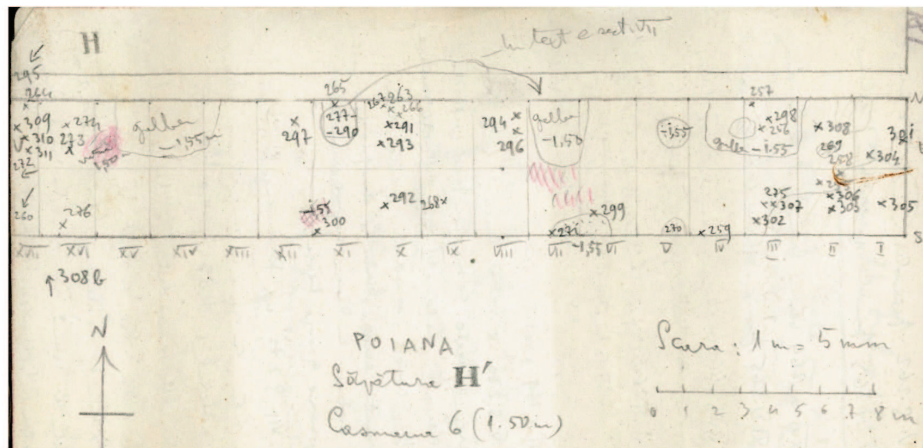 H
295
264
265
257
N
309
274
galben
-1,55 m
297
277-
-290
267
263
266
291
293
294
296
galben
-1,50
-1,55
298
256
galben -1.55
308
269
258
304
310
273
311
272
1,50
260
276
-1.55
300
292
268
299
271
-1,55
270
259
275
307
302
306
303
305
S
XVII XVI XV XIV XIII XII XI X IX VIII VII VI V IV III II I
308b
N
POIANA
Săpătura H'
Casmaua 6 (1.50 m)
Scara: 1 m = 5 mm
0 1 2 3 4 5 6 7 8 m